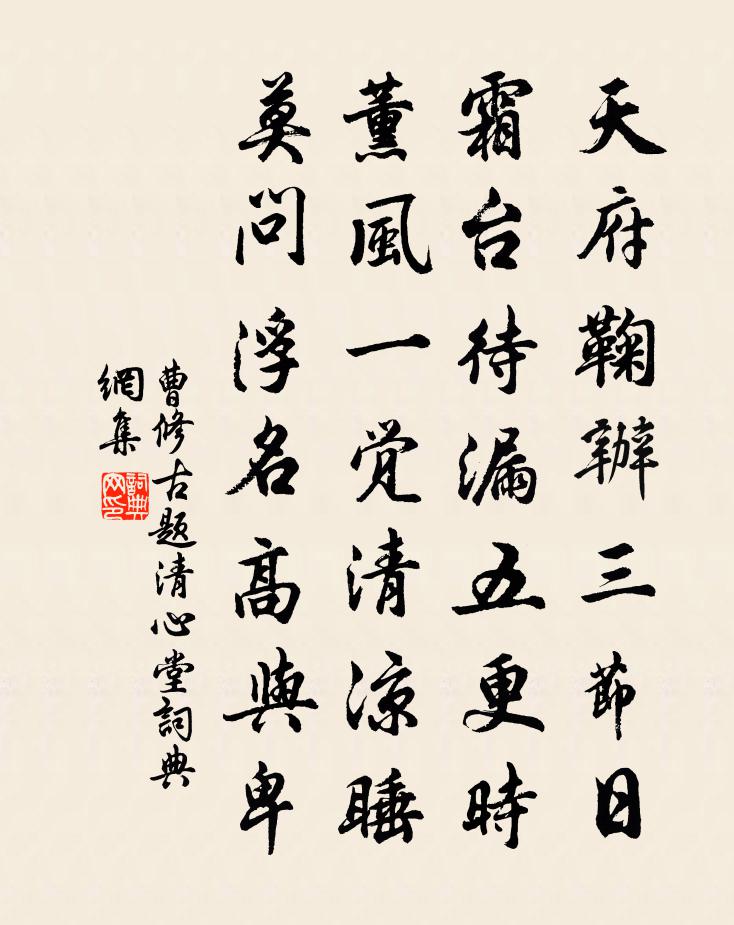 天府鞠辦三節日
霜台待漏五更時
薰風一覚清涼睡
莫问浮名高與卑
曹修古题清心堂詞典
網集
詞典网印